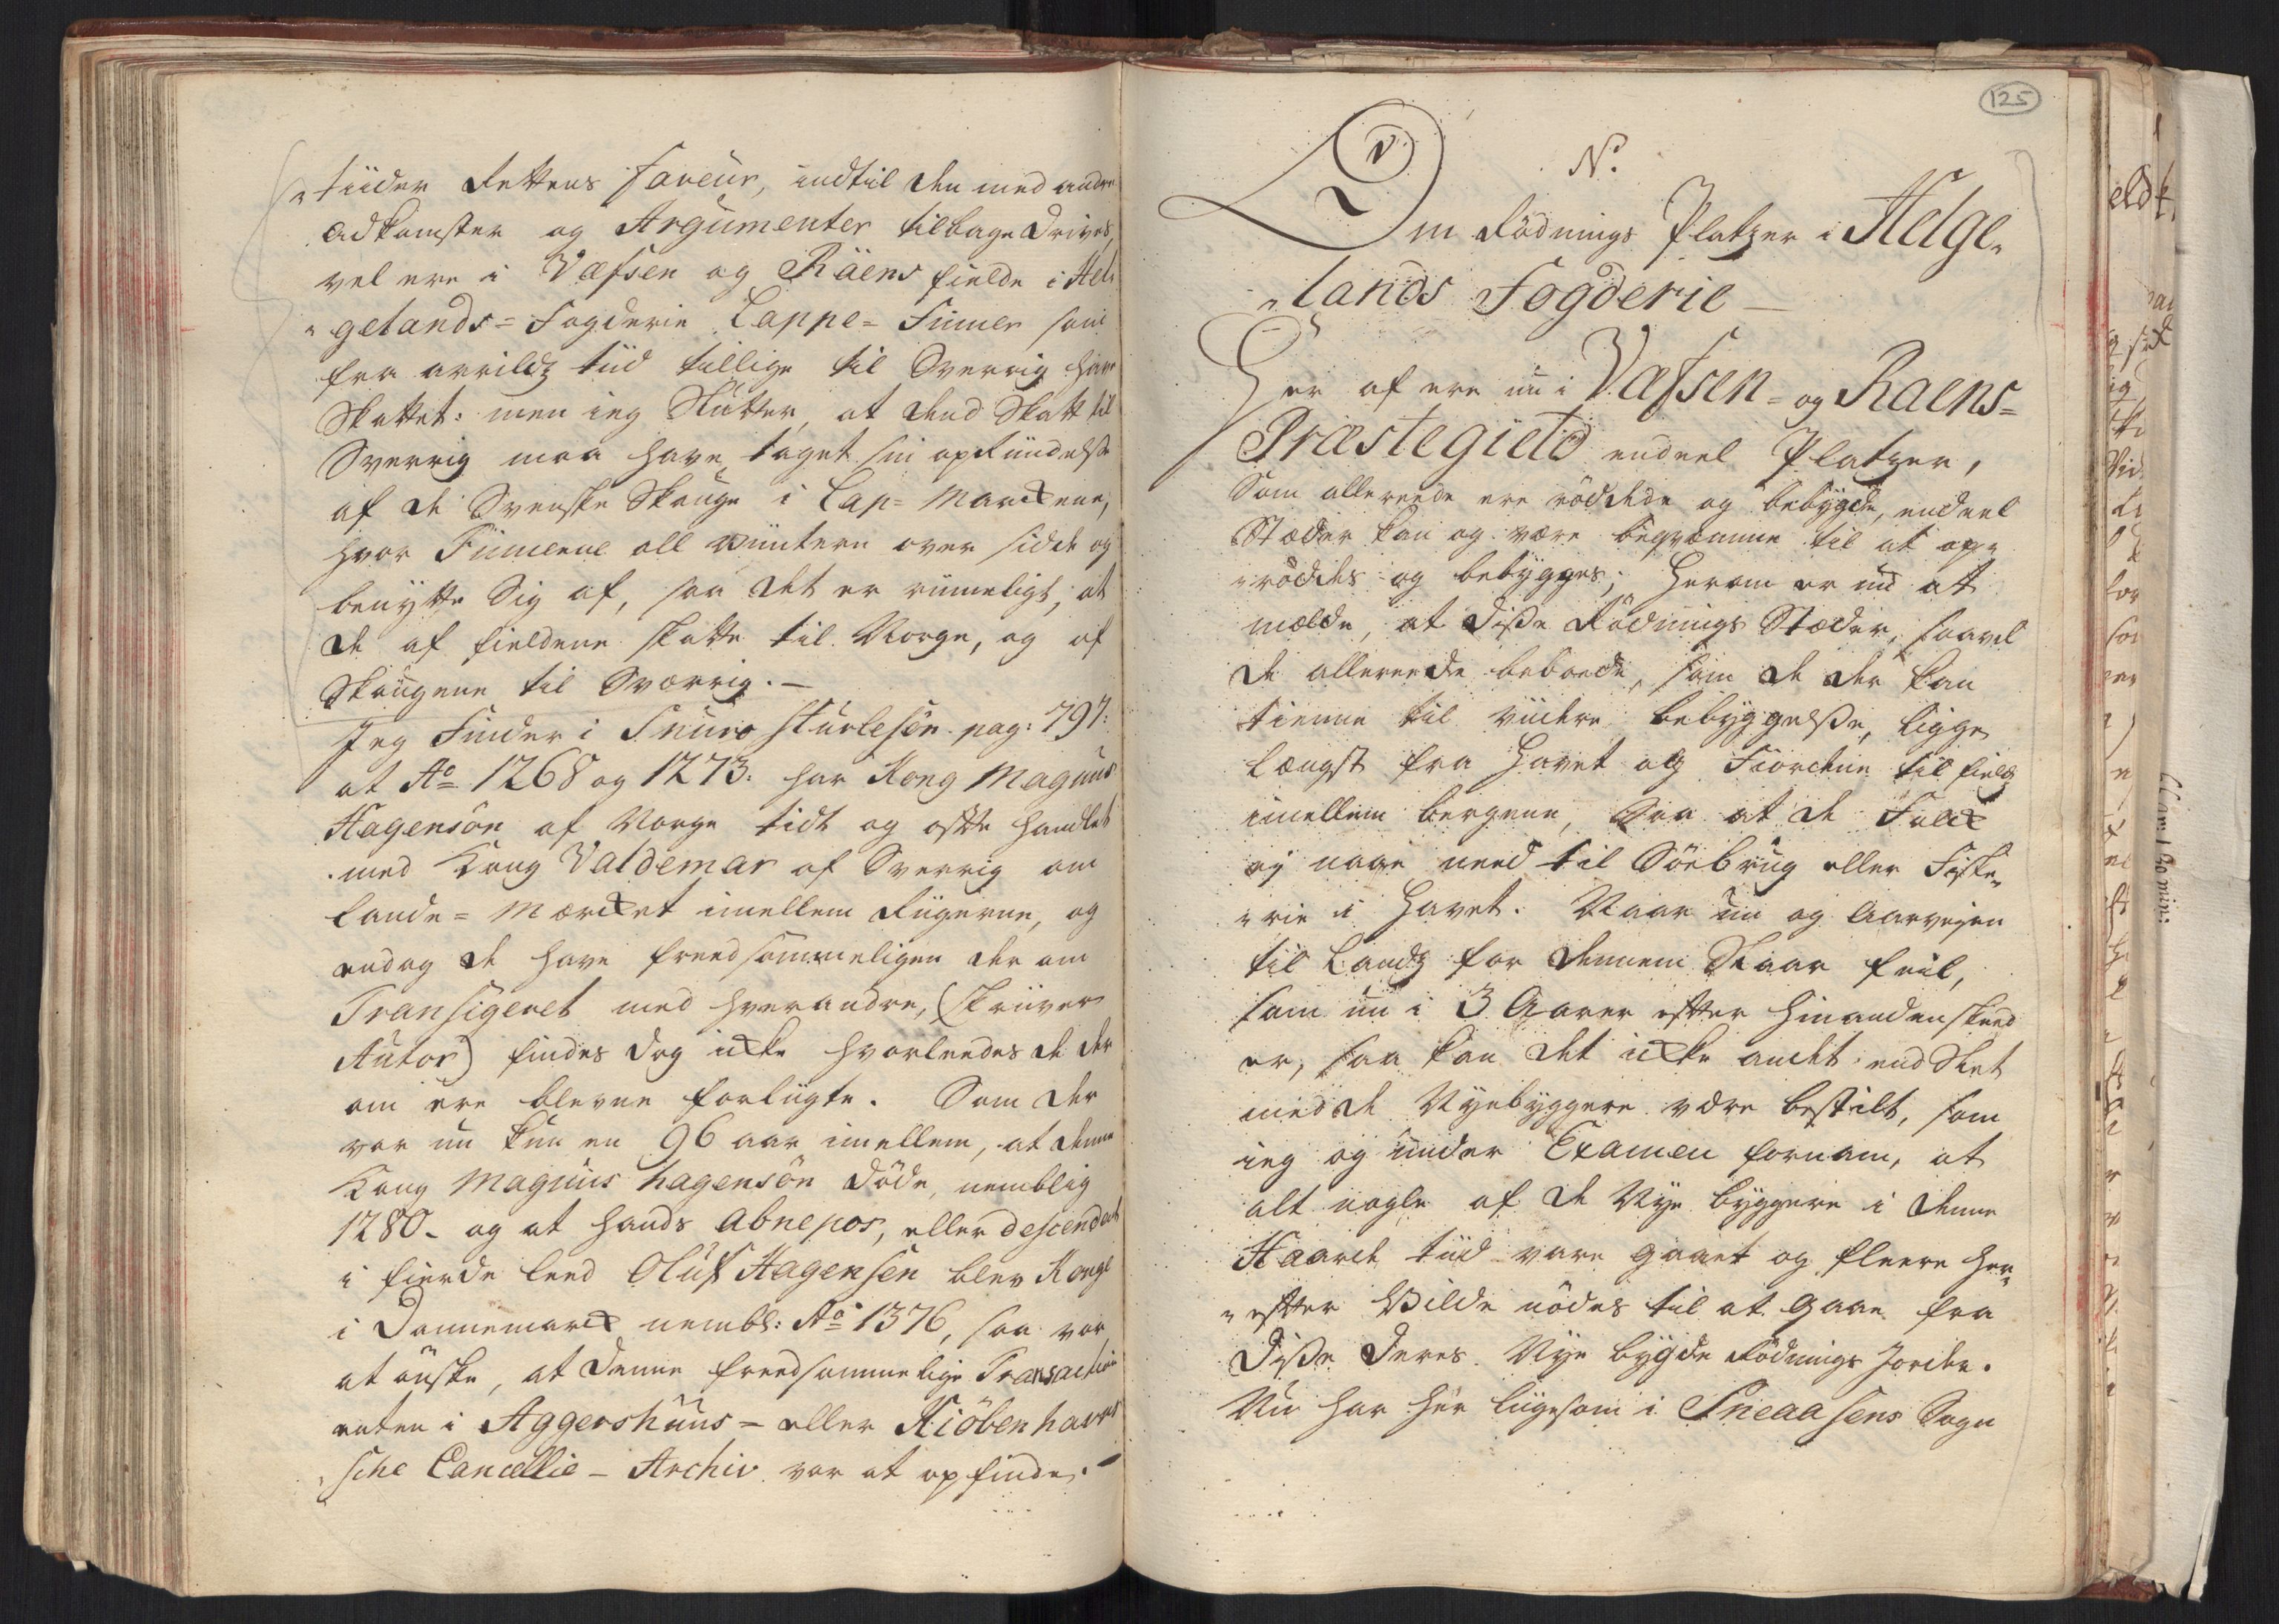 „tiider Rettens faveur, indtil den med andre
Adkomster og Argumenter tilbage drives,
vel ere i Væfsen og Räens fielde i Hel„
„gelands= Fogderie Lappe= Finner som
fra arrildz tiid tillige til Sverrig have
Skattet: men ieg Slutter, at dend Skatt til
Sverrig maa have taget sin opRindelse
af de Svenske Skouge i Lap= Marckene,
hvor Finnerne all Vinteren over sidde og
benytte Sig af, saa det er rimeligt, at
de af fieldene skatte til Norge, og af
Skougene til Sværrig. —
Jeg Finder i Snúro Stúrlesön pag: 797:
at Ao 1268 og 1273: har Kong Magnus
Hagensön af Norge tidt og ofte handlet
med Kong Valdemar af Sverrig om
Lande= Mærcket imellem Riigerne, og
endog de have freedsommeligen der om
Transigeret med hverandre, (skriiver
Autor) findes dog icke hvorleedes de der
om ere blevne forliigte. Som der
var nu kun en 96 aar imellem, at denne
Kong Magnus hagensön döde, nemblig
1280. og at hands Abnepos, eller descendent
i fierde leed Oluf Hagensen blev Konge
i Dannemarck nembl: Ao 1376, saa var
at önske, at denne freedsommelige Transaction
enten i Aggershuus= eller Kiöbenhavns
sche Cancellie - Archiv var at opfinde.
125
No
Om Rödnings Platzer i Helge„
„lands Fogderie —
Her af ere nu i Væfsen= og Raens=
Præstegield endeel Platzer,
Som allereede ere röddede og bebygde, endeel
Stæder kan og være beqvemme til at op„
„röddes og bebygges; Herom er nu at
melde, at disse Rödnings Stæder, saavel
de allereede beboede, som de der kan
tienne til viidere bebyggelse, ligge
længst fra Havet og Fiordene til fields
imellem bergene, Saa at de Folck
ej naae need til Söebrug eller Fiske„
„rie i Havet. Naar nu og Aarvejen
til Landz for dennem Slaar feil,
som nu i 3 Aarer efter hinanden skeed
er, saa kan det icke andet end Slet
med de Nyebyggere være bestilt, som
ieg og under Examen fornam, at
alt nogle af de Nye byggere i denne
Haarde tiid vare gaaet og fleere her„
„efter Vilde nödes til at gaae fra
Disse deres Nye bygde Rödnings Jorder.
Nu har her liigesom i Sneaasens Sogn